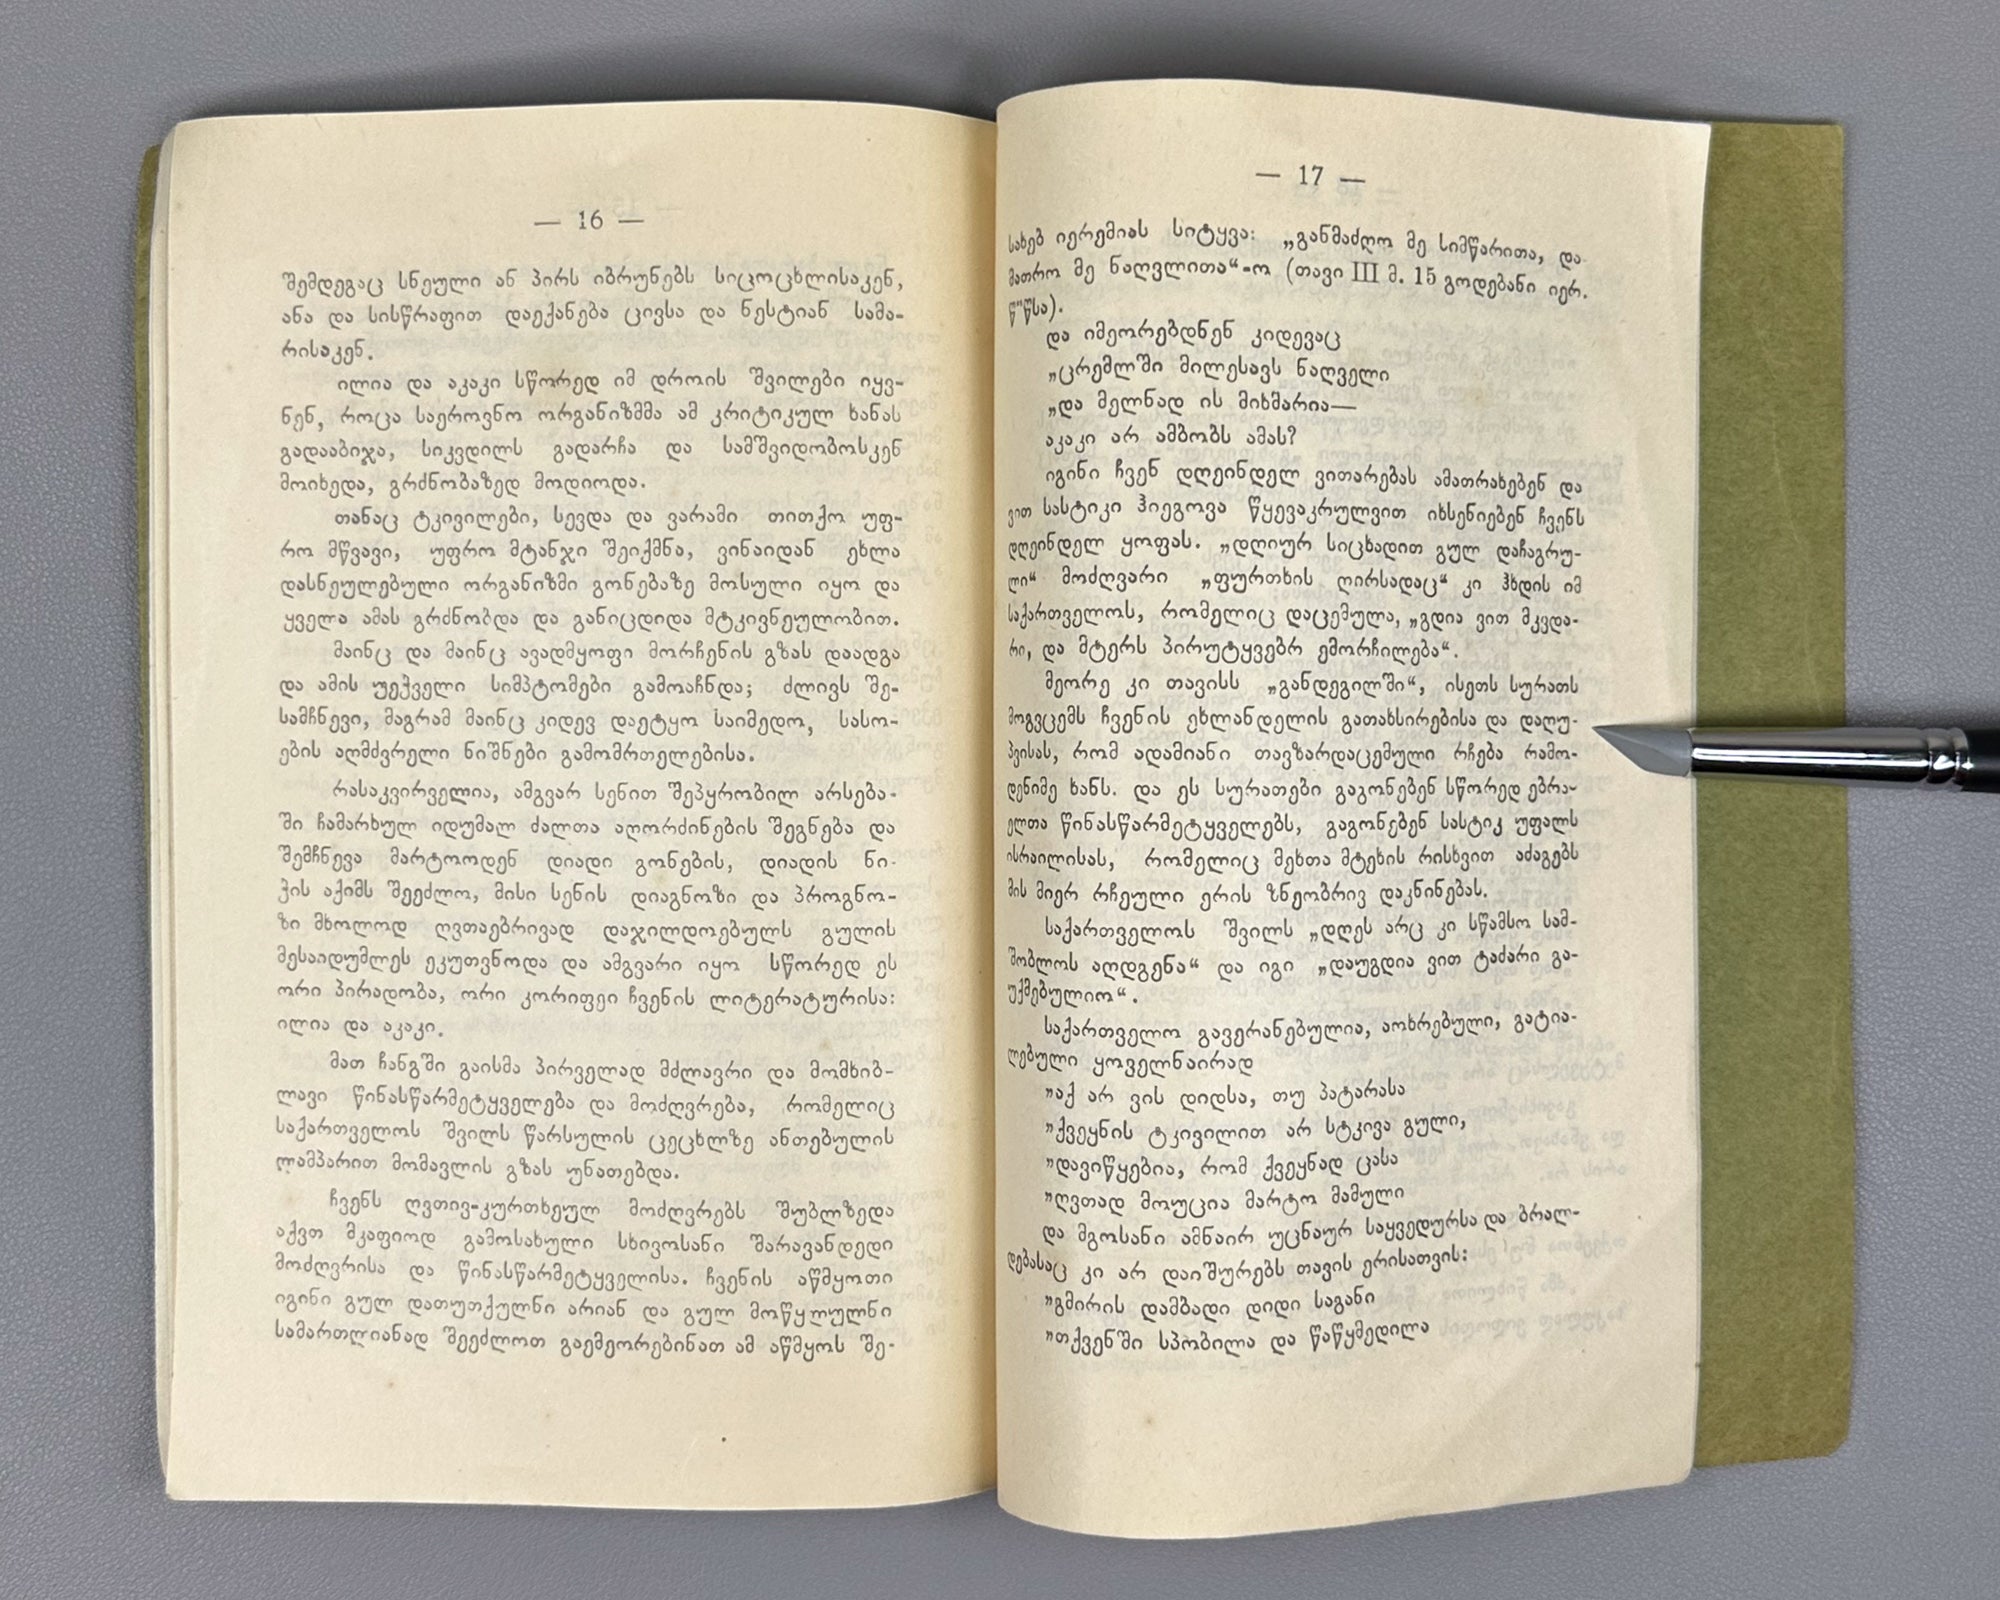 — 16 —
შემდეგაც სნეული ან პირს იბრუნებს სიცოცხლისაკენ,
ანა და სისწრაფით დაექანება ცივსა და ნესტიან სამა-
რისაკენ.
ილია და აკაკი სწორედ იმ დროის შვილები იყვ-
ნენ, როცა საეროვნო ორგანიზმმა ამ კრიტიკულ ხანას
გადააბიჯა, სიკვდილს გადარჩა და სამშვიდობოსკენ
მოიხედა, გრძნობაზედ მოდიოდა.
თანაც ტკივილები, სევდა და ვარამი თითქო უფ-
რო მწვავი, უფრო მტანჯი შეიქმნა, ვინაიდან ეხლა
დასნეულებული ორგანიზმი გონებაზე მოსული იყო და
ყველა ამას გრძნობდა და განიცდიდა მტკივნეულობით.
მაინც და მაინც ავადმყოფი მორჩენის გზას დაადგა
და ამის უეჭველი სიმპტომები გამოაჩნდა; ძლივს შე-
სამჩნევი, მაგრამ მაინც კიდევ დაეტყო საიმედო, სასო-
ების აღმძვრელი ნიშნები გამომრთელებისა.
რასაკვირველია, ამგვარ სენით შეპყრობილ არსება-
ში ჩამარხულ იდუმალ ძალთა აღორძინების შეგნება და
შემჩნევა მარტოოდენ დიადი გონების, დიადის ნი-
ჭის აქიმს შეეძლო, მისი სენის დიაგნოზი და პროგნო-
ზი მხოლოდ ღვთაებრივად დაჯილდოებულს გულის
მესაიდუმლეს ეკუთვნოდა და ამგვარი იყო სწორედ ეს
ორი პირადობა, ორი კორიფეი ჩვენის ლიტერატურისა:
ილია და აკაკი.
მათ ჩანგში გაისმა პირველად მძლავრი და მომხიბ-
ლავი წინასწარმეტყველება და მოძღვრება, რომელიც
საქართველოს შვილს წარსულის ცეცხლზე ანთებულის
ლამპარით მომავლის გზას უნათებდა.
ჩვენს ღვთივ-კურთხეულ მოძღვრებს შუბლზედა
აქვთ მკაფიოდ გამოსახული სხივოსანი შარავანდედი
მოძღვრისა და წინასწარმეტყველისა. ჩვენის აწმყოთი
იგინი გულ დათუთქულნი არიან და გულ მოწყლულნი
სამართლიანად შეეძლოთ გაემეორებინათ ამ აწმყოს შე-
— 17 —
სახებ იერემიას სიტყვა: „განმაძღო მე სიმწარითა, და
მათრო მე ნაღვლითა“-ო (თავი III მ. 15 გოდებანი იერ.
წ"წსა).
და იმეორებდნენ კიდევაც
„ცრემლში მილესავს ნაღველი
„და მელნად ის მიხმარია—
აკაკი არ ამბობს ამას?
იგინი ჩვენ დღეინდელ ვითარებას ამათრახებენ და
ვით სასტიკი ჰიეგოვა წყევაკრულვით იხსენიებენ ჩვენს
დღეინდელ ყოფას. „დღიურ სიცხადით გულ დაჩაგრუ-
ლი“ მოძღვარი „ფურთხის ღირსადაც“ კი ჰხდის იმ
საქართველოს, რომელიც დაცემულა, „გდია ვით მკვდა-
რი, და მტერს პირუტყვებრ ემორჩილება“.
მეორე კი თავისს „განდეგილში“, ისეთს სურათს
მოგვცემს ჩვენის ეხლანდელის გათახსირებისა და დაღუ-
პვისას, რომ ადამიანი თავზარდაცემული რჩება რამო-
დენიმე ხანს. და ეს სურათები გაგონებენ სწორედ ებრა-
ელთა წინასწარმეტყველებს, გაგონებენ სასტიკ უფალს
ისრაილისას, რომელიც მეხთა მტეხის რისხვით აძაგებს
მის მიერ რჩეული ერის ზნეობრივ დაკნინებას.
საქართველოს შვილს „დღეს არც კი სწამსო სამ-
შობლოს აღდგენა“ და იგი „დაუგდია ვით ტაძარი გა-
უქმებულიო“.
საქართველო გავერანებულია, აოხრებული, გატია-
ლებული ყოველნაირად
„აქ არ ვის დიდსა, თუ პატარასა
„ქვეყნის ტკივილით არ სტკივა გული,
„დავიწყებია, რომ ქვეყნად ცასა
„ღვთად მოუცია მარტო მამული
და მგოსანი ამნაირ უცნაურ საყვედურსა და ბრალ-
დებასაც კი არ დაიშურებს თავის ერისათვის:
„გმირის დამბადი დიდი საგანი
„თქვენში სპობილა და წაწყმედილა